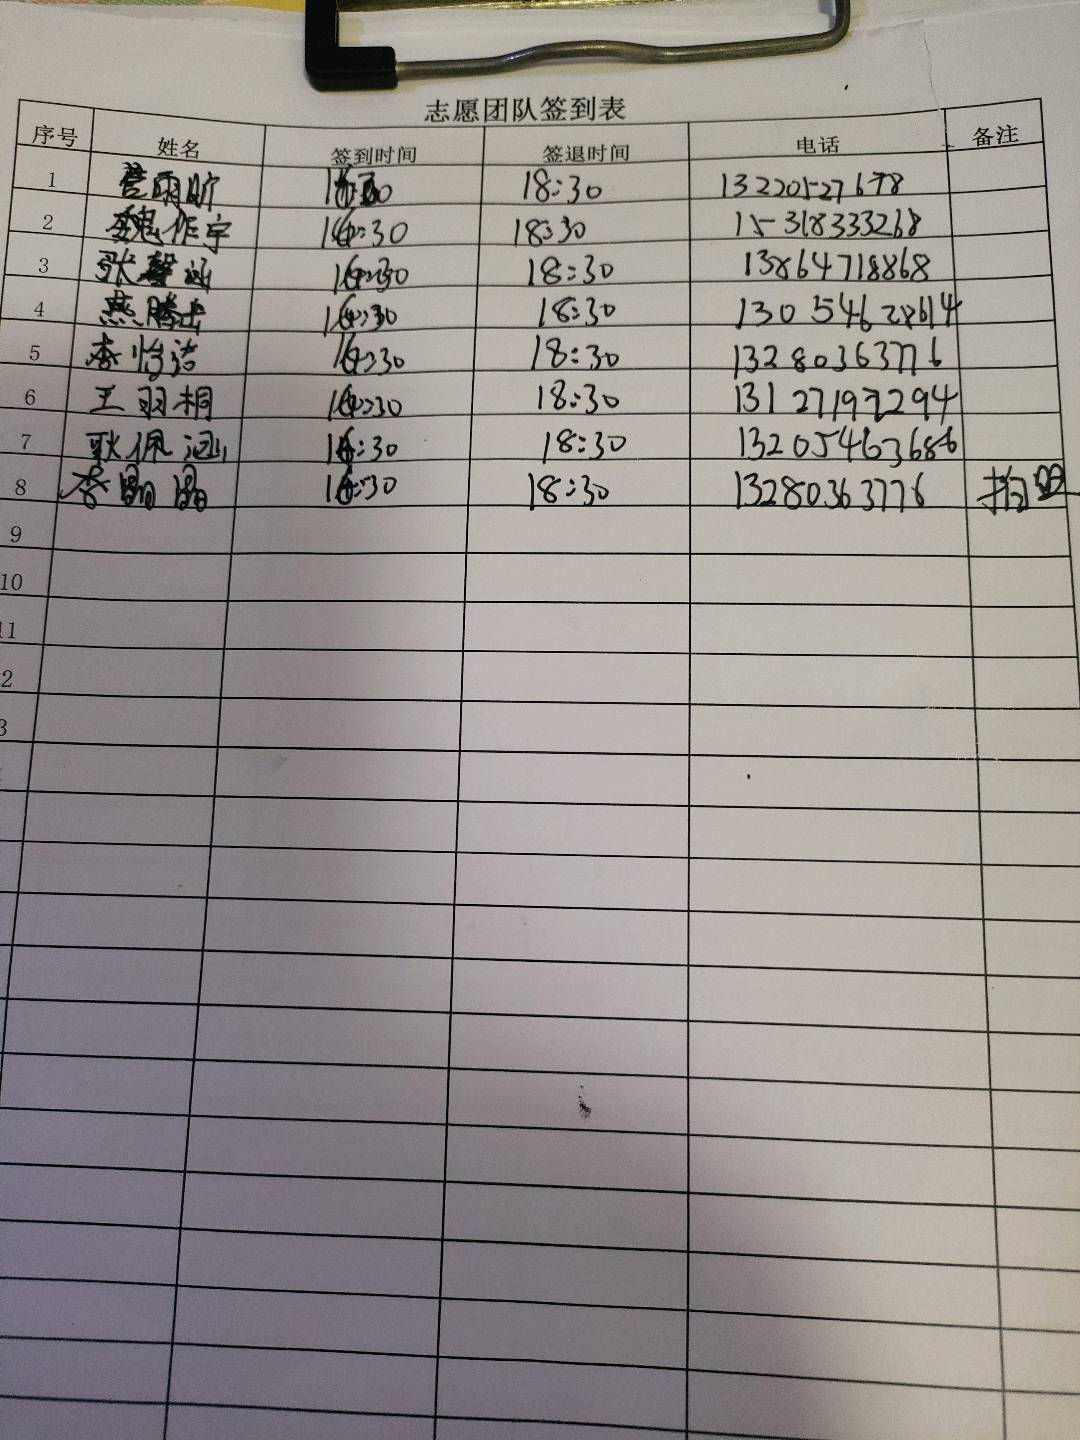 志愿团队签到表
序号 姓名 签到时间 签退时间 电话 备注
1 雨 18:30 13220527678
2 魏作宇 :30 18:30 15318333268
3 张馨涵 :30 18:30 13864718868
4 燕腾 :30 18:30 13054628614
5 李怡洁 :30 18:30 13280363776
6 王羽桐 :30 18:30 13127197294
7 耿佩涵 :30 18:30 13205463686
8 李晶晶 :30 18:30 13280363776 拍照
9
10
11
2
3